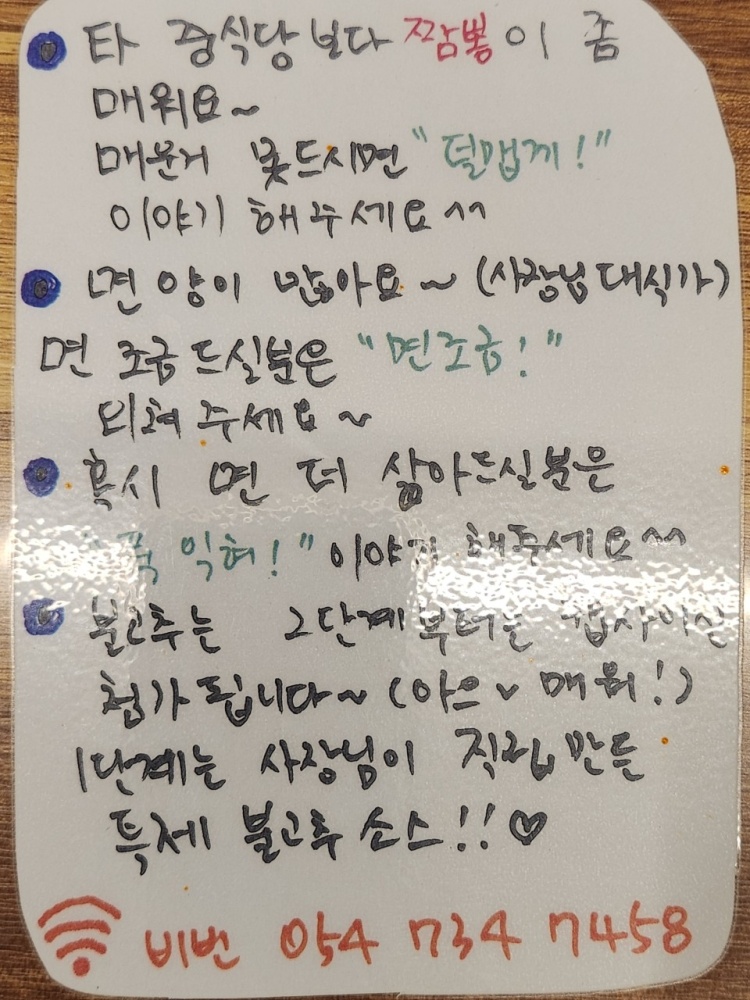 타 중식당보다 짬뽕이 좀
매워요~
매운거 못드시면 "덜맵게!"
이야기 해주세요^^
면 양이 많아요~ (사장님 대식가)
면 조금 드실분은 "면조금!"
외쳐 주세요~
혹시 면 더 삶아드실분은
"푹 익혀!" 이야기 해주세요^^
불고추는 2단계부터는 캡사이신
첨가 됩니다~ (아으~ 매워!)
1단계는 사장님이 직접 만든
특제 불고추 소스!!♡
비번 054 734 7458